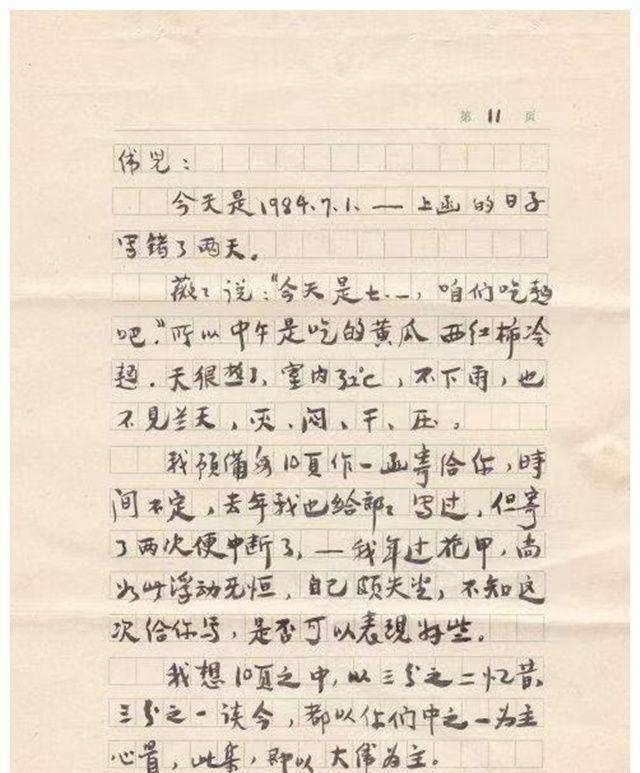 第 11 页
伟儿：
今天是1984.7.1.— 上函的日子
写错了两天。
薇々说："今天是七.一，咱们吃麵
吧."所以中午是吃的黄瓜西红柿冷
麵.天很热了，室内32℃，不下雨，也
不见兰天，灰、闷、干、压。
我预备每10頁作一函寄给你，時
间不定，去年我也给部々写过，但寄
了两次便中断了，—我年过花甲，尚
如此浮动无恒，自己颇失望，不知这
次给你写，是否可以表現好些。
我想10頁之中，以三分之二忆昔，
三分之一谈今，都以你们中之一为主
心骨，此集，即以大伟为主。